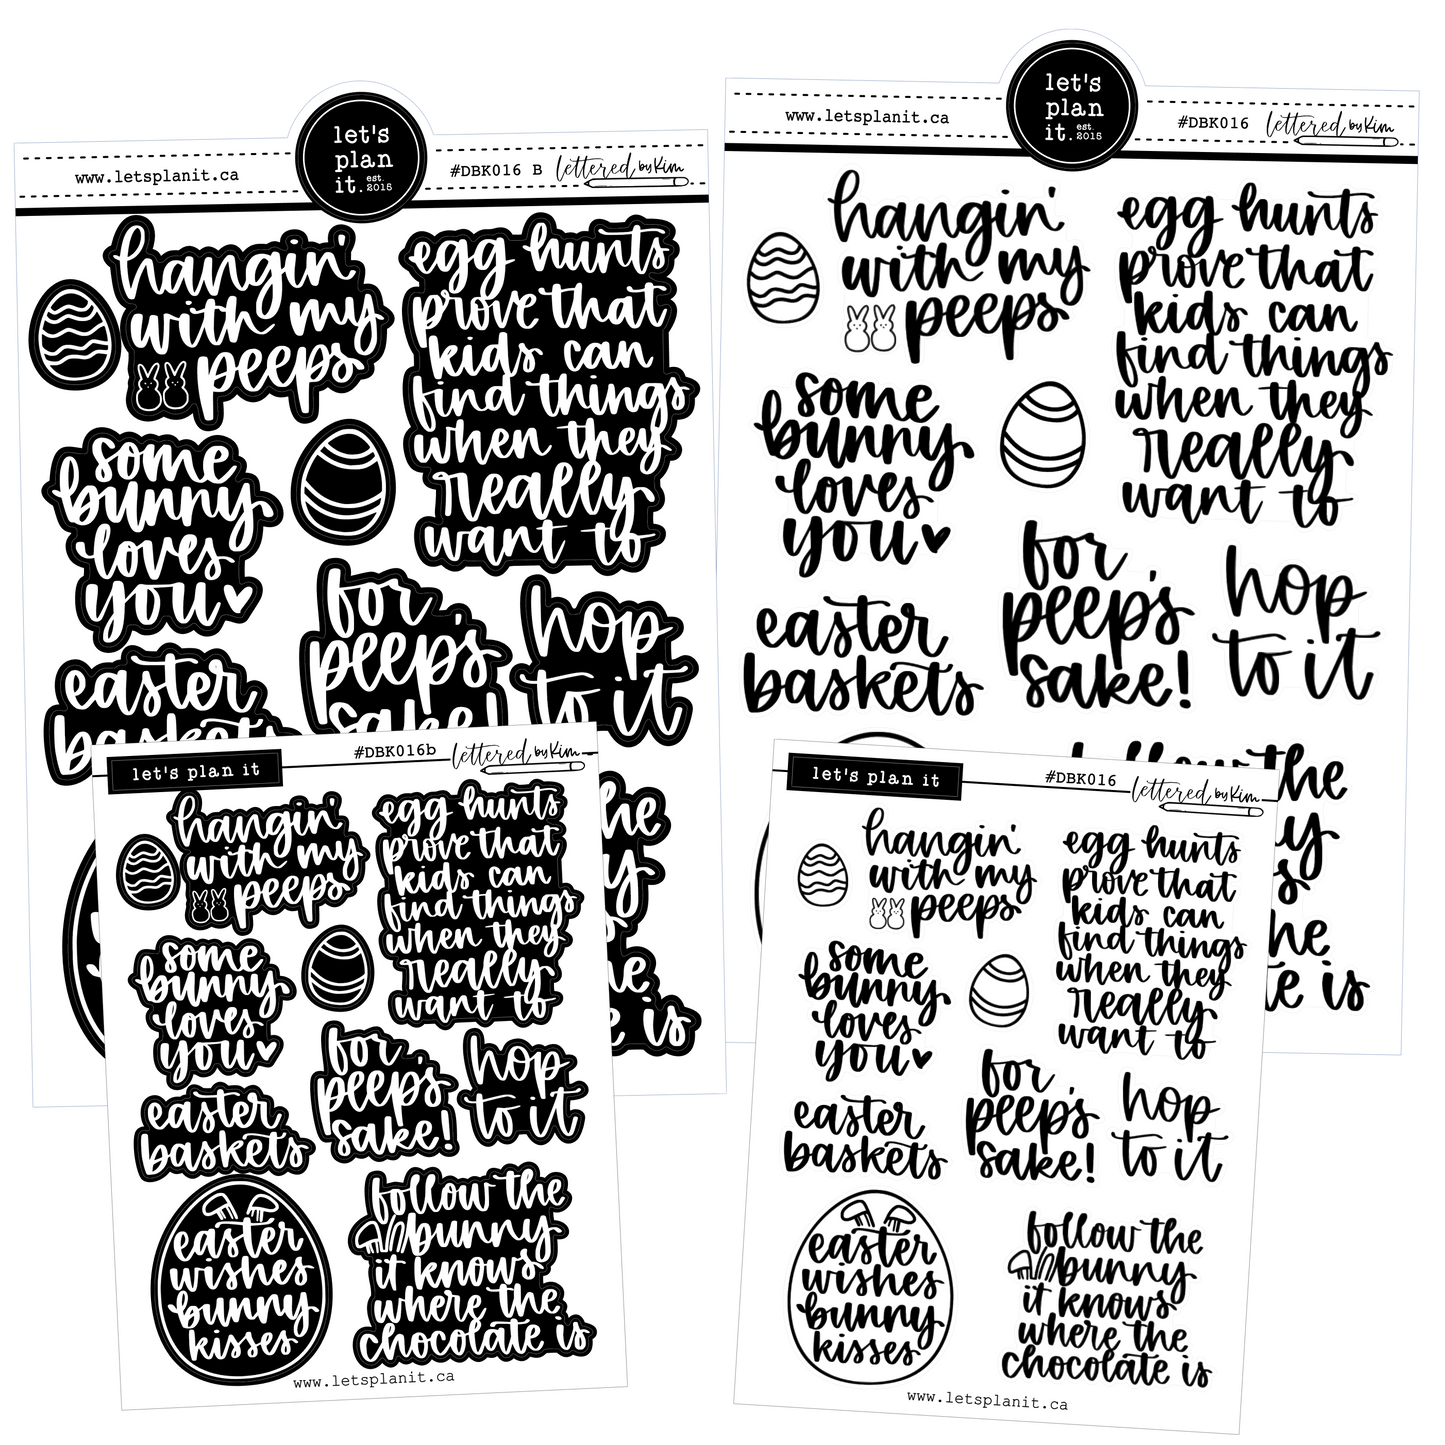 let's
plan
it. est. 2015
www.letsplanit.ca
#DBK016 B
lettered by Kim
hangin'
with my
peeps
egg hunts
prove that
kids can
find things
when they
really
want to
some
bunny
loves
you
for
peep's
sake!
hop
to it
easter
baskets
he
y
he
e is
let's
plan
it. est. 2015
www.letsplanit.ca
#DBK016
lettered by Kim
hangin'
with my
peeps
egg hunts
prove that
kids can
find things
when they
really
want to
some
bunny
loves
you
for
peep's
sake!
hop
to it
easter
baskets
follow the
y
s
he
te is
let's plan it
#DBK016b
lettered by Kim
hangin'
with my
peeps
egg hunts
prove that
kids can
find things
when they
really
want to
some
bunny
loves
you
for
peep's
sake!
hop
to it
easter
baskets
easter
wishes
bunny
kisses
follow the
bunny
it knows
where the
chocolate is
www.letsplanit.ca
let's plan it
#DBK016
lettered by Kim
hangin'
with my
peeps
egg hunts
prove that
kids can
find things
when they
really
want to
some
bunny
loves
you
for
peep's
sake!
hop
to it
easter
baskets
easter
wishes
bunny
kisses
follow the
bunny
it knows
where the
chocolate is
www.letsplanit.ca